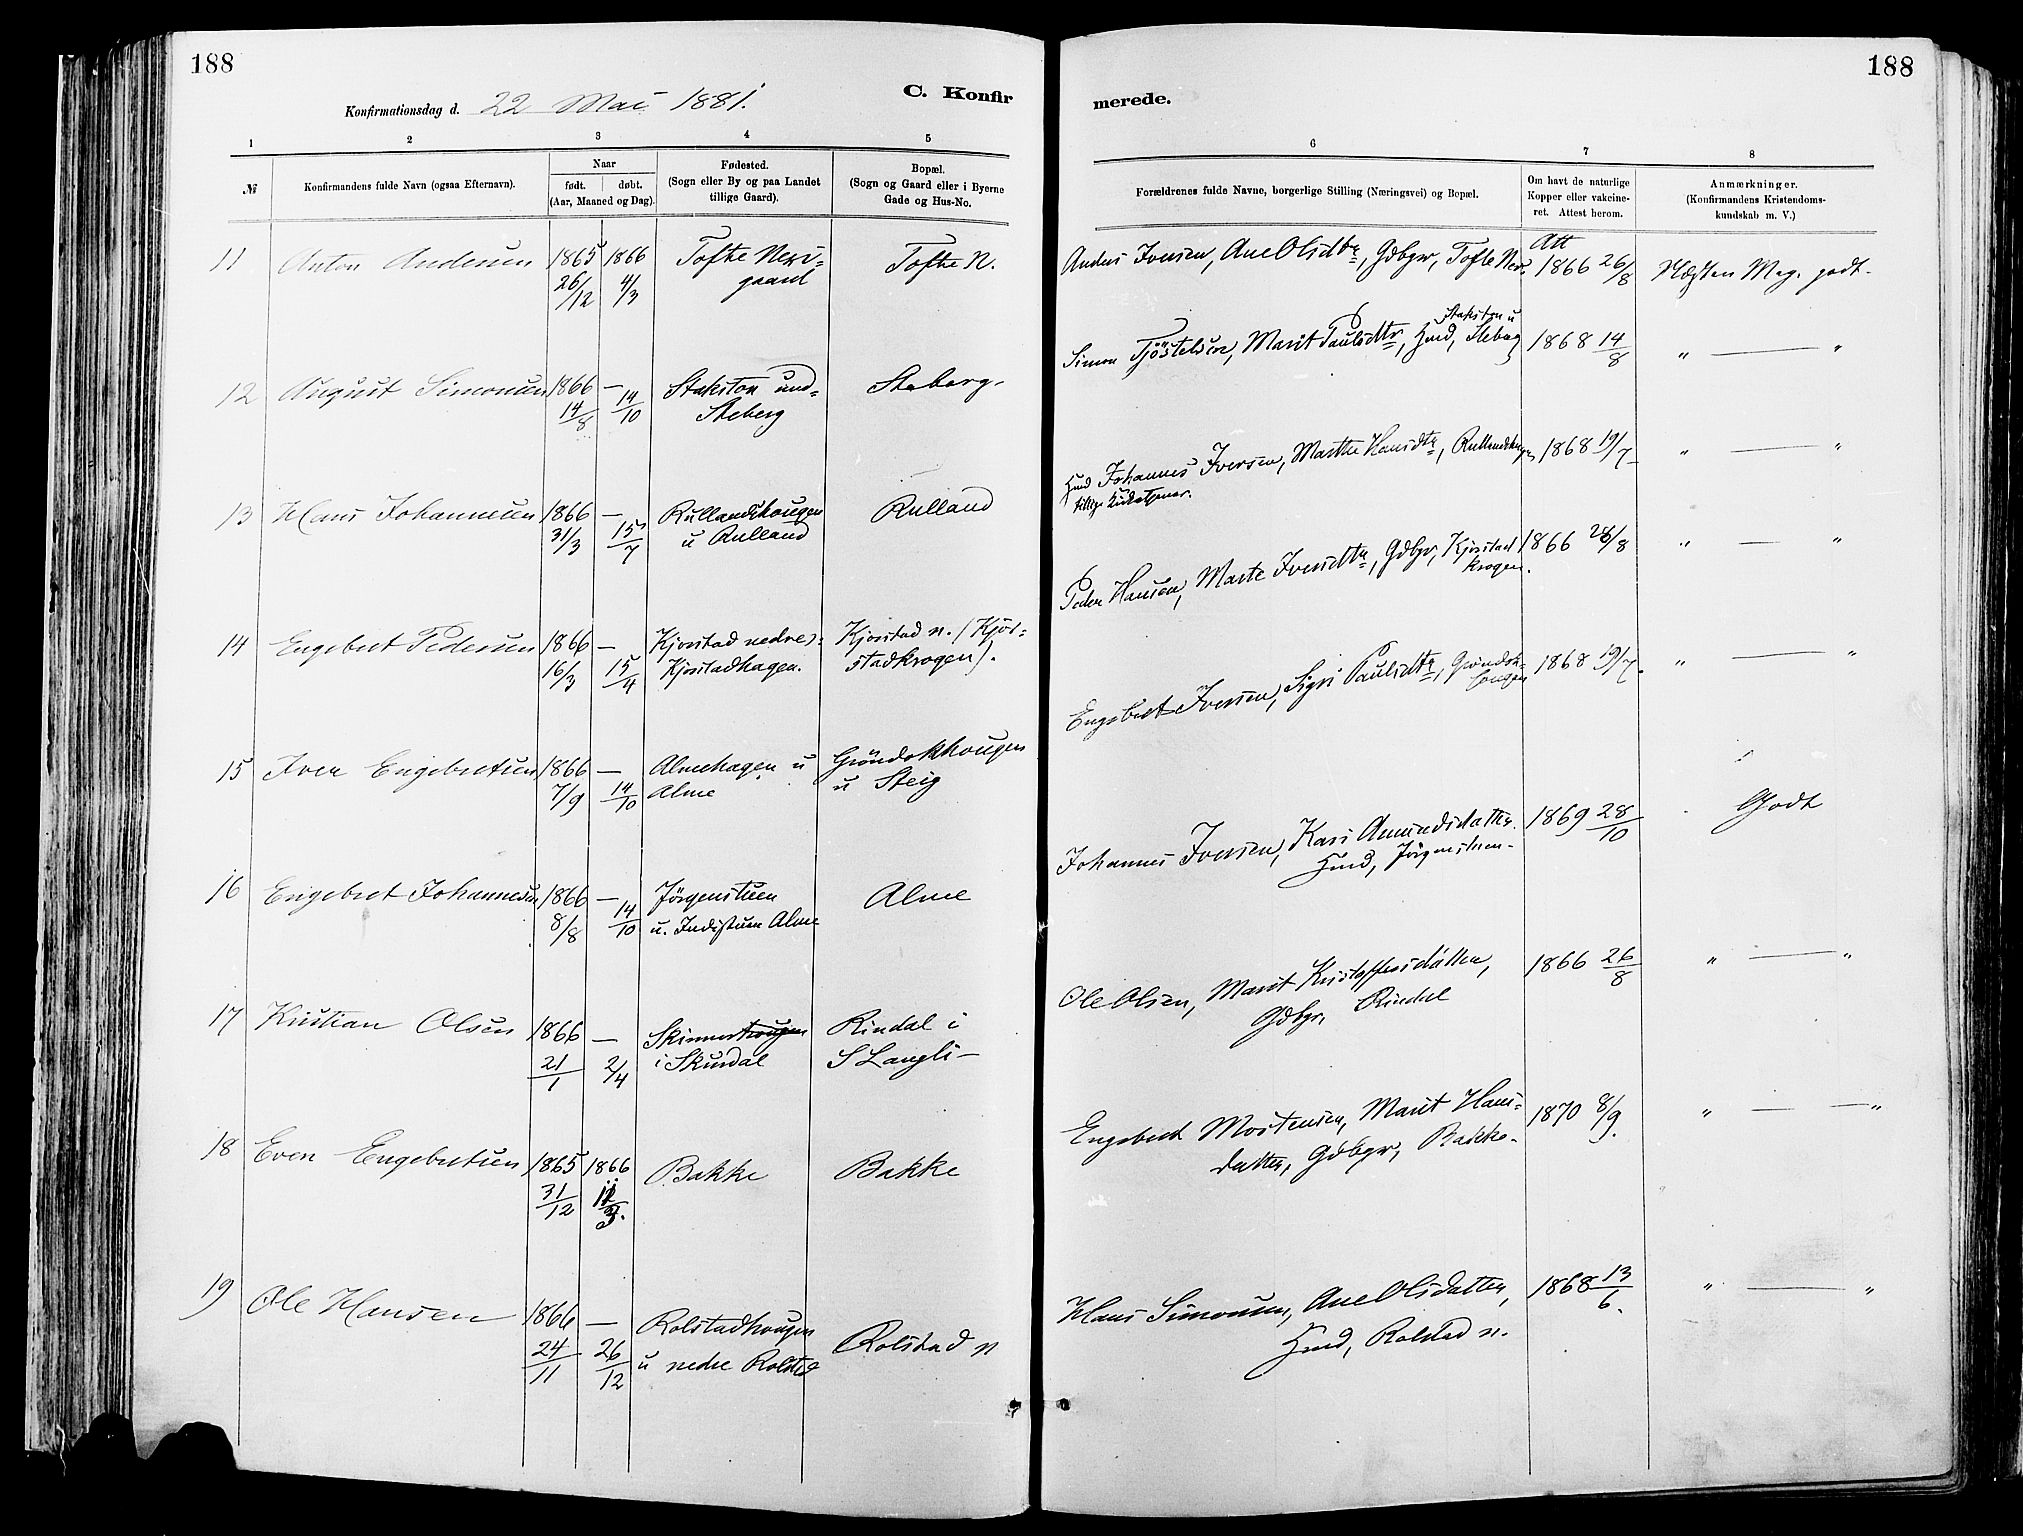 188
188
Konfirmationsdag d. 22 Mai 1881.
C. Konfir
merede.
1 2 3 4 5
6 7 8
№
Konfirmandens fulde Navn (ogsaa Efternavn).
Naar
født. døbt.
(Aar, Maaned og Dag).
Fødested.
(Sogn eller By og paa Landet
tillige Gaard).
Bopæl.
(Sogn og Gaard eller i Byerne
Gade og Hus-No.
Forældrenes fulde Navne, borgerlige Stilling (Næringsvei) og Bopæl.
Om havt de naturlige
Kopper eller vakcine-
ret. Attest herom.
Anmærkninger.
(Konfirmandens Kristendoms-
kundskab m. V.)
11 Anton Andersen 1865 1866 Tofte Neri- Tofte N.
26/12 4/3 gaard
Anders Iversen, Ane Olsdtr, Gdbgr, Tofte Ner. Att 1866 26/8 Næsten Meg. godt.
12 August Simonsen 1866 — Stakston und- Steberg.
14/8 14/10 Steberg
Stakston u
Simon Tjöstelsen, Marit Paulsdtr, Hmd, Steberg 1868 14/8 " — "
13 Hans Johannesen 1866 — Rullandshougen Rulland
31/3 15/7 u Rulland
Hmd Johannes Iversen, Marthe Hansdtr, 1868 19/7 " — "
tillige Kirketjener.
14 Engebret Pedersen 1866 — Kjorstad nedre): Kjorstad n. (Kjör-
16/3 15/4 Kjorstadhagen. stadkrogen).
Peder Hansen, Marte Iversdtr, Gdbgr, Kjorstad 1866 28/8 " — "
krogen.
15 Iver Engebretsen 1866 — Almehagen u Gröndokhougen
7/9 14/10 Alme u Steig
Engebret Iversen, Sigri Paulsdtr, Gröndok- 1868 19/7. " — "
hougen
16 Engebret Johannesen 1866 — Jörgenstuen Alme
8/8 14/10 u. Indistuen Alme
Johannes Iversen, Kari Amundsdatter 1869 28/10 Godt
Hmd, Jörgenstuen.
17 Kristian Olsen 1866 — Skinnerhougen Rindal i
21/1 2/4 i Skurdal S Langli —
Ole Olsen, Marit Kristoffersdatter, 1866 26/8 " — "
Gdbgr, Rindal
18 Even Engebretsen 1865 1866 Bakke Bakke
31/12 11/3.
Engebret Mortensen, Marit Hans- 1870 8/9. " — "
datter, Gdbgr, Bakke.
19 Ole Hansen 1866 — Rolstadhougen Rolstad n
24/11 26/12 u nedre Rolstad
Hans Simonsen, Ane Olsdatter, 1868 13/6. " — "
Hmd, Rolstad n.